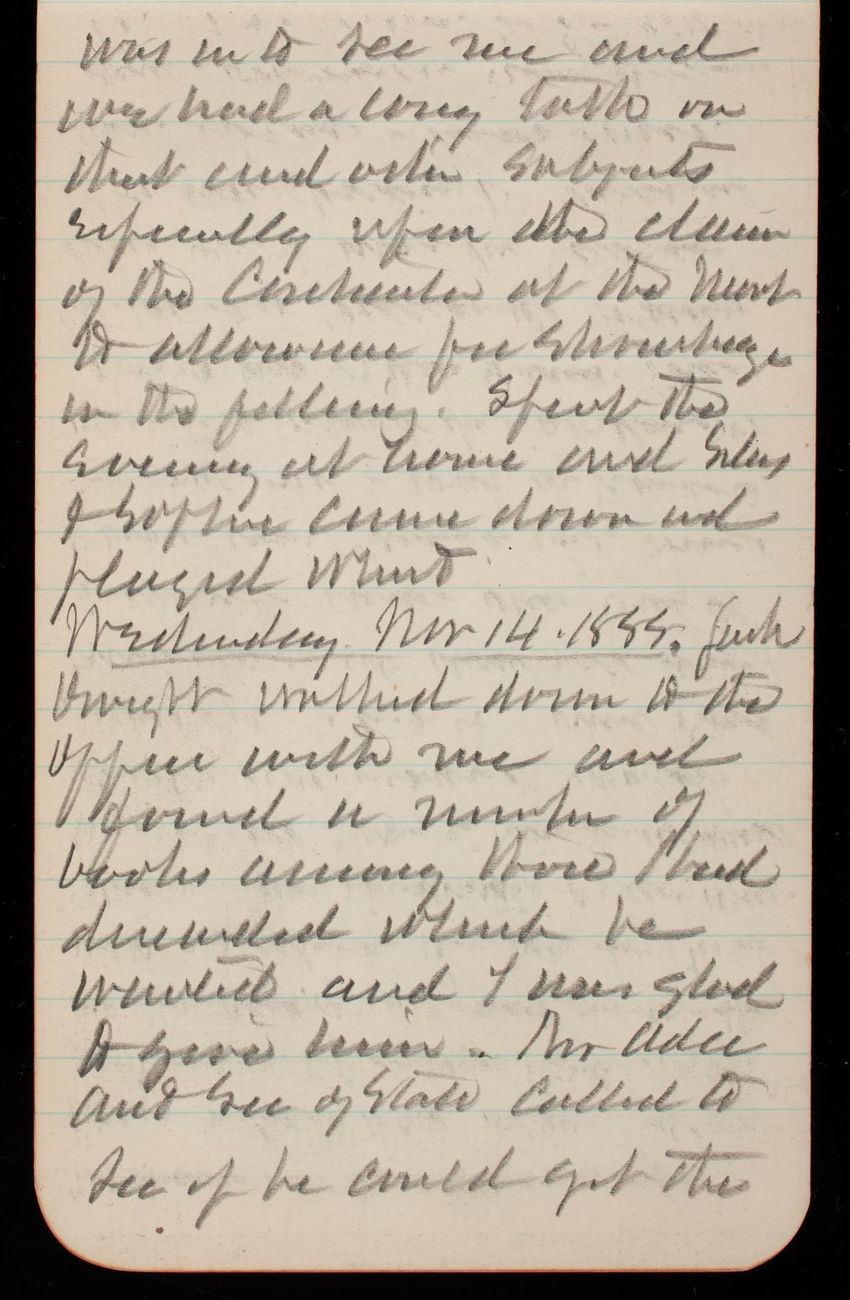 was in to see me and
we had a long talk on
that and other subjects
especially upon the claim
of the Contractor at the
to allowance for Shrinkage
in the filling. Spent the
evening at home and
& Sophie came down and
played Whist
Wednesday Nov 14. 1888. Jack
Dwight walked down to the
Office with me and
found a number of
books among those I had
discarded which he
wanted and I was glad
to give him. Mr Adee
Asst Sec of State called to
see if he could get the